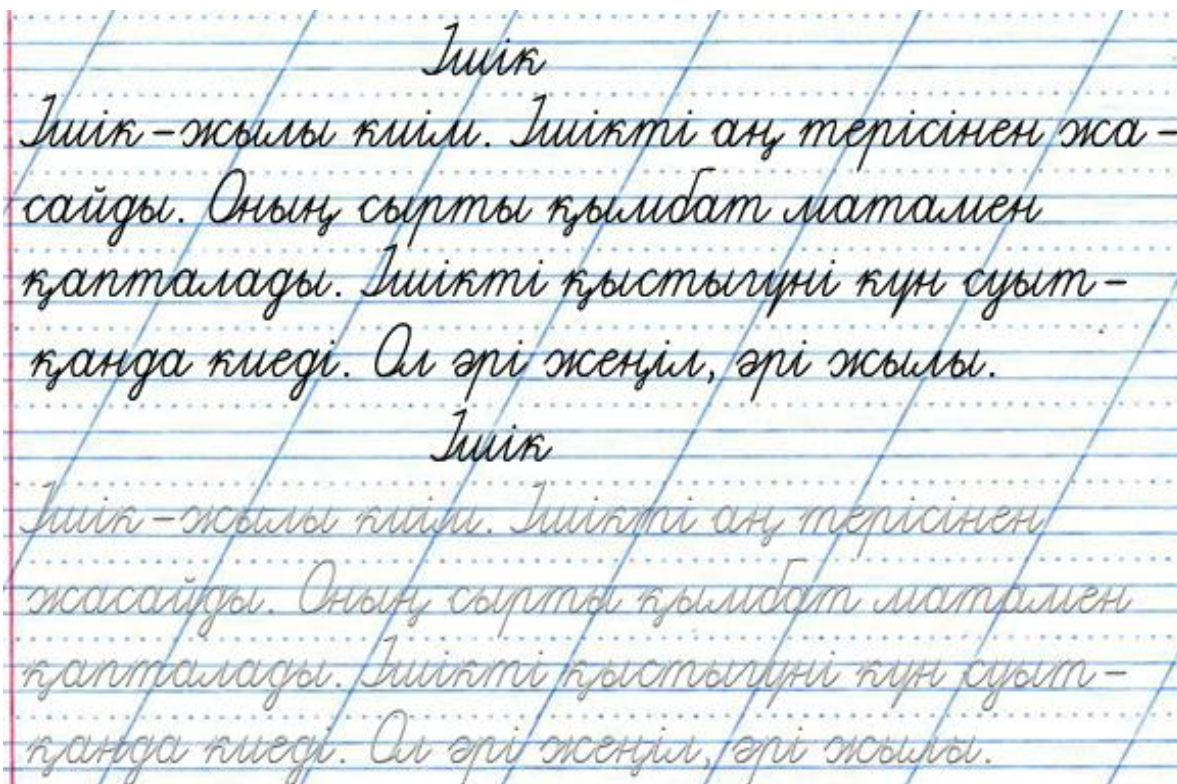 Ішік
Ішік – жылы киім. Ішікті аң терісінен жа –
сайды. Оның сырты қымбат матамен
қапталады. Ішікті қыстыгүні күн суыт –
қанда киеді. Ол әрі жеңіл, әрі жылы.
Ішік
Ішік – жылы киім. Ішікті аң терісінен
жасайды. Оның сырты қымбат матамен
қапталады. Ішікті қыстыгүні күн суыт –
қанда киеді. Ол әрі жеңіл, әрі жылы.